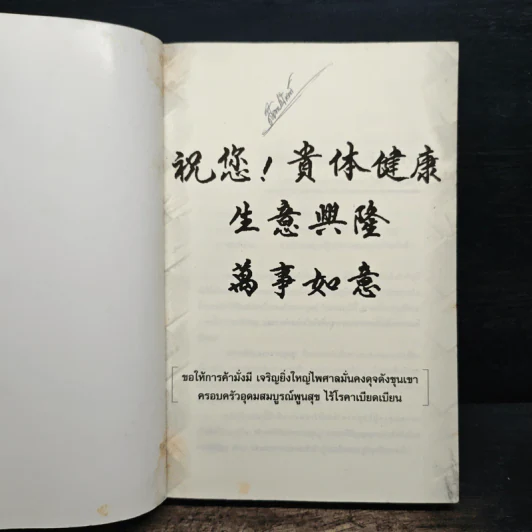 祝您！貴体健康
生意興隆
萬事如意
ขอให้การค้ามั่งมี เจริญยิ่งใหญ่ไพศาลมั่นคงดุจดังขุนเขา
ครอบครัวอุดมสมบูรณ์พูนสุข ไร้โรคาเบียดเบียน